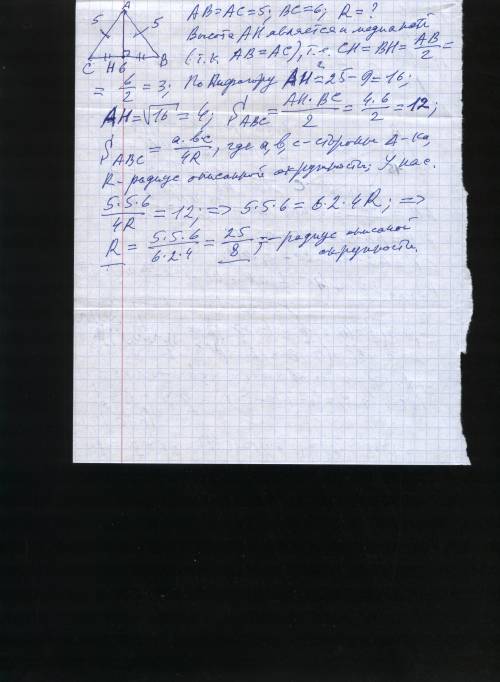 A
5
5
C
H
6
B
AB=AC=5; BC=6; R=?
Высота AH является и медианой
(т.к. AB=AC), т.е. CH=BH=AB/2=
= 6/2 = 3; По Пифагору AH²=25-9=16;
AH=√16=4; S ABC = AH·BC/2 = 4·6/2 = 12;
S ABC = a·b·c/4R, где a,b,c-стороны Δ-ка,
R-радиус описанной окружности; У нас.
5·5·6/4R = 12; => 5·5·6=6·2·4R; =>
R = 5·5·6/6·2·4 = 25/8; -радиус описаной
окружности.